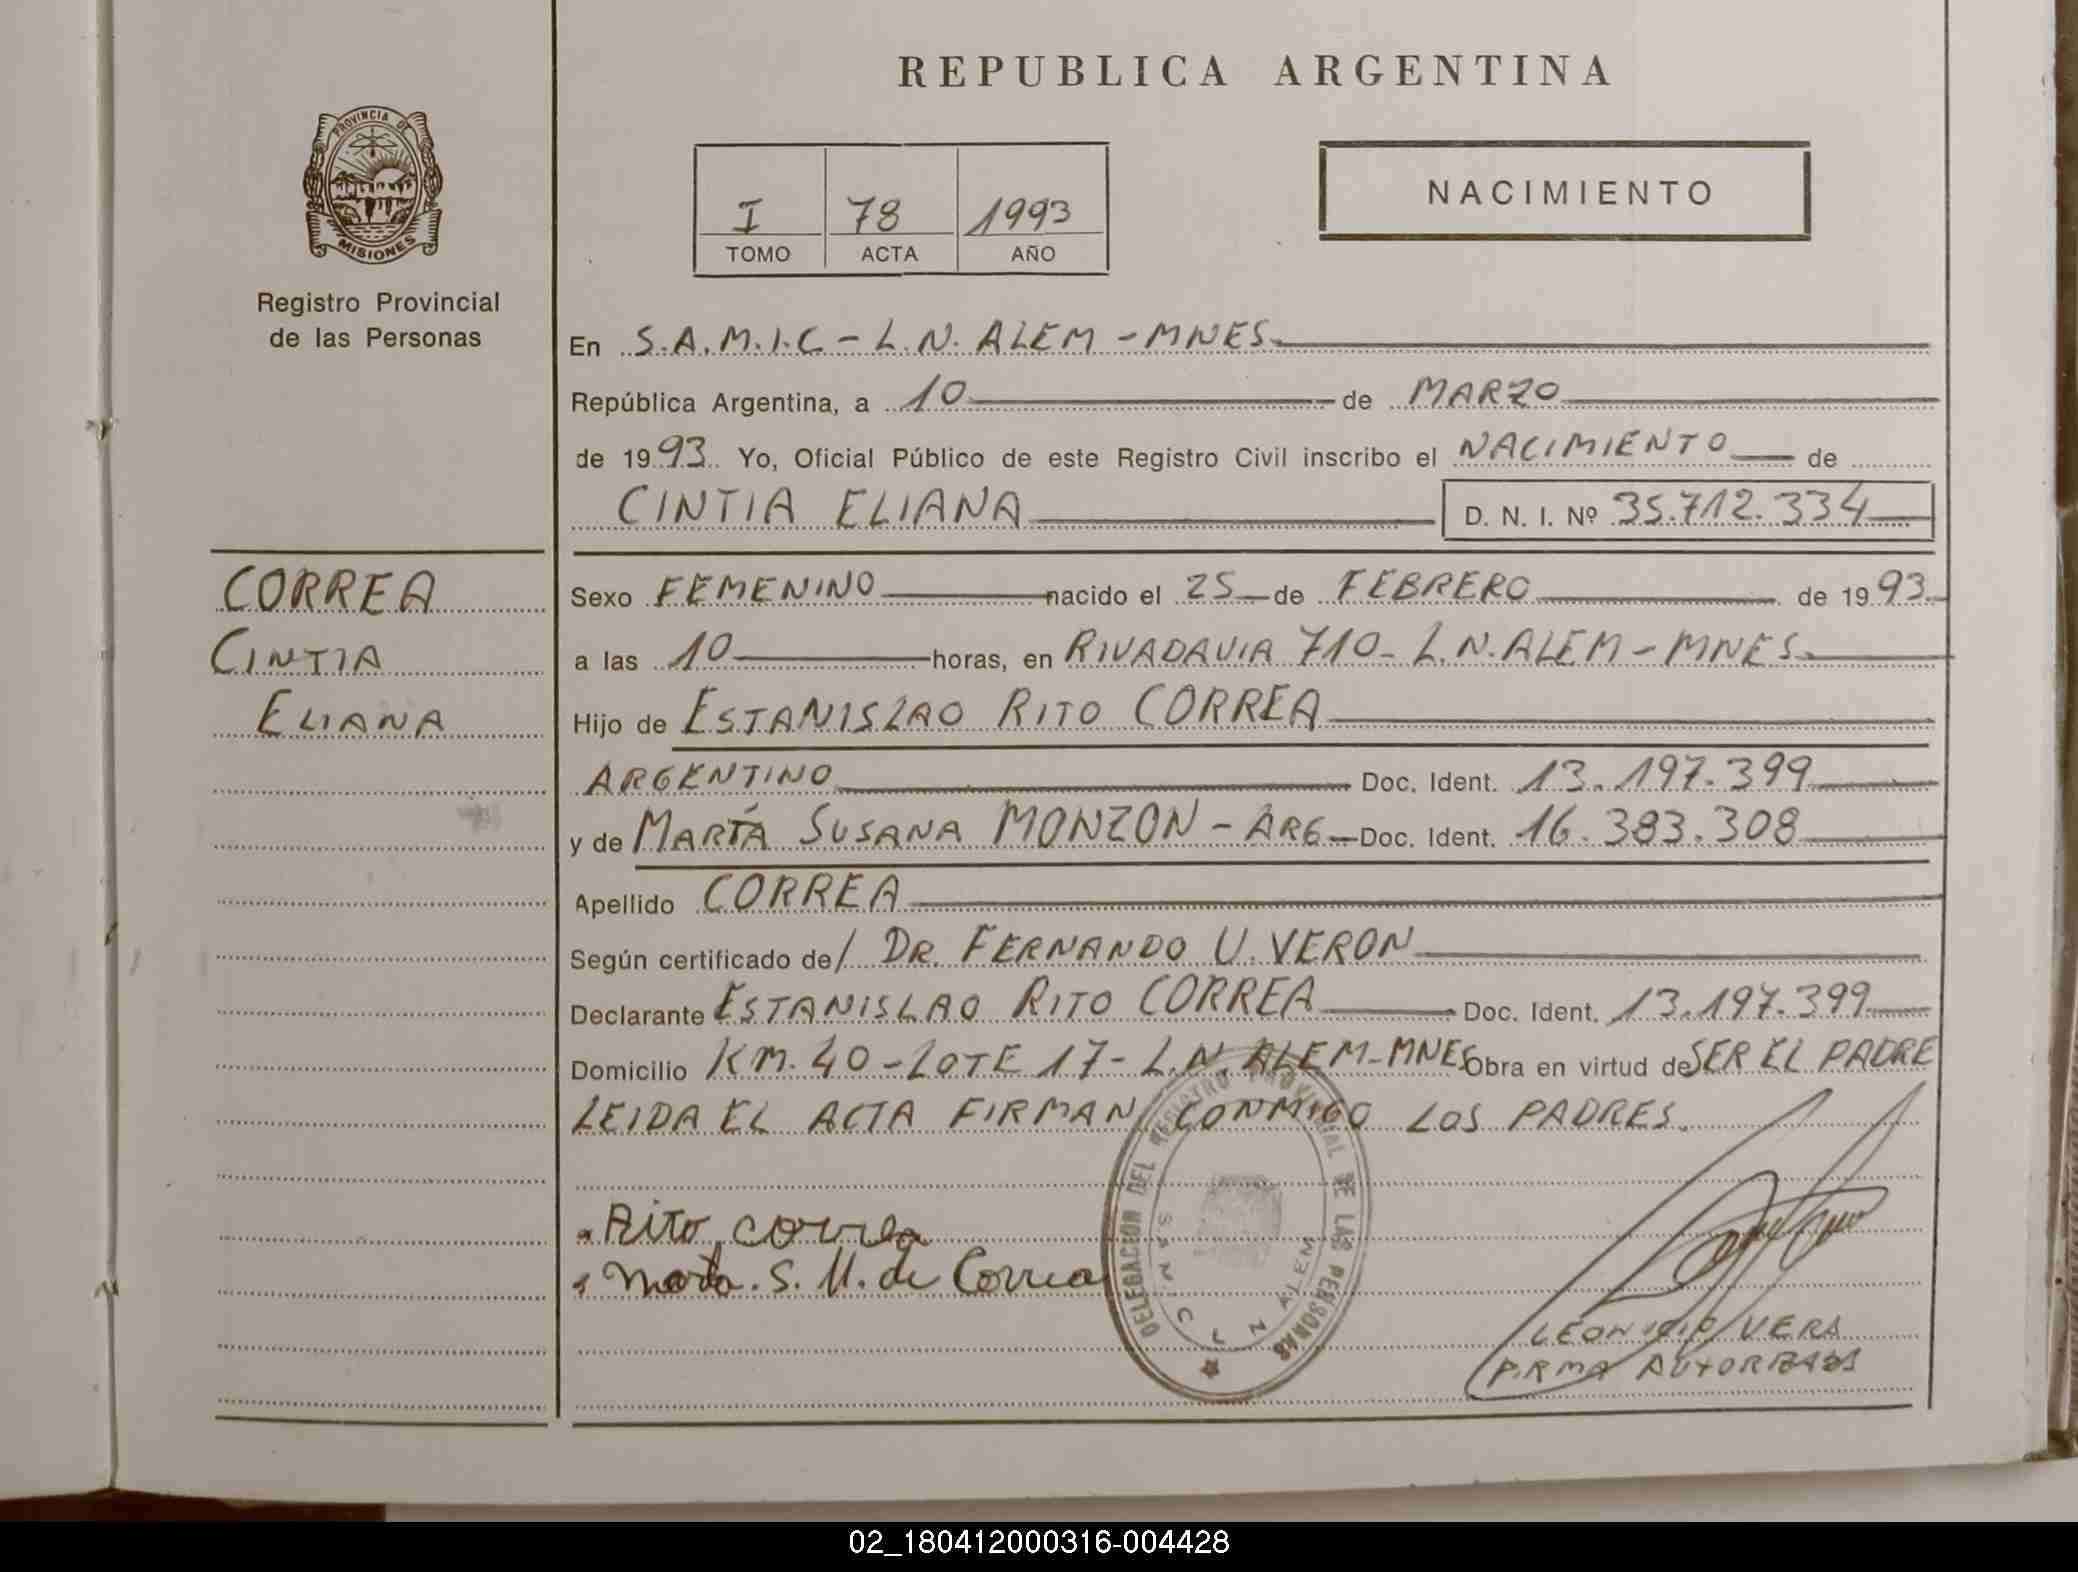 REPUBLICA ARGENTINA
PROVINCIA DE
MISIONES
Registro Provincial
de las Personas
I 78 1993
TOMO ACTA AÑO
NACIMIENTO
En S.A.M.I.C - L.N. ALEM - MNES.
República Argentina, a 10 de MARZO
de 1993. Yo, Oficial Público de este Registro Civil inscribo el NACIMIENTO de
CINTIA ELIANA D. N. I. Nº 35.712.334
CORREA
CINTIA
ELIANA
Sexo FEMENINO nacido el 25 de FEBRERO de 1993.
a las 10 horas, en RIVADAVIA 710 - L.N. ALEM - MNES.
Hijo de ESTANISLAO RITO CORREA
ARGENTINO Doc. Ident. 13.197.399
y de MARTA SUSANA MONZON - ARG - Doc. Ident. 16.383.308
Apellido CORREA
Según certificado de/ DR. FERNANDO U. VERON
Declarante ESTANISLAO RITO CORREA Doc. Ident. 13.197.399
Domicilio KM. 40 - LOTE 17 - L.N. ALEM - MNES Obra en virtud de SER EL PADRE
LEIDA EL ACTA FIRMAN CONMIGO LOS PADRES.
Rito correa
Marta. S. M. de Correa
DELEGACION DEL REGISTRO PROVINCIAL DE LAS PERSONAS
ALEM
VERA
FIRMA AUTORIZADA
02_180412000316-004428